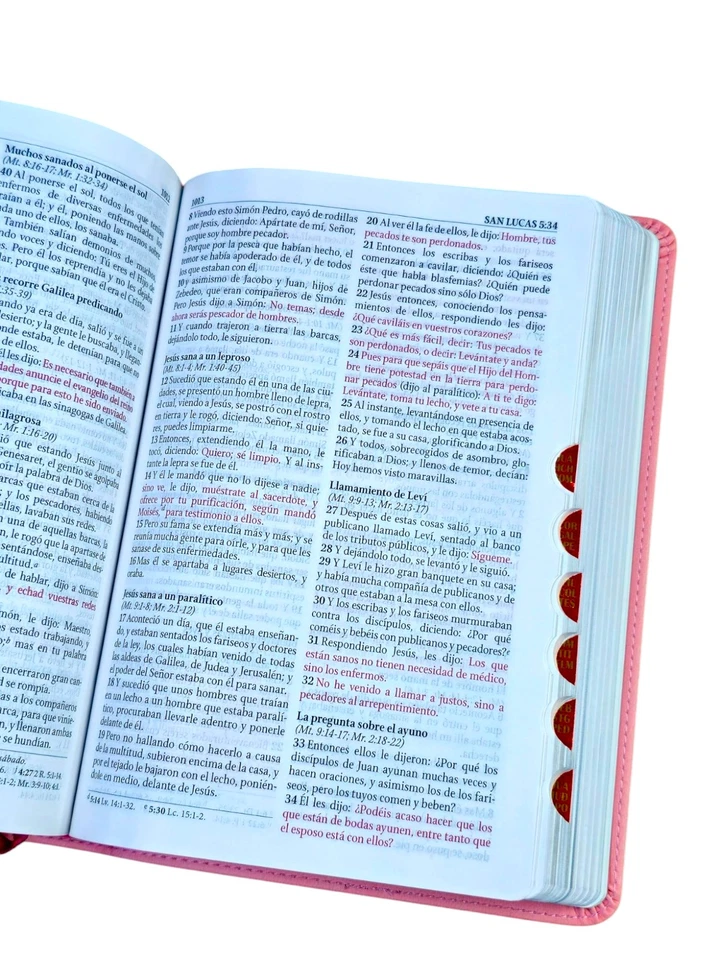 Muchos sanados al ponerse el sol
(Mt. 8:16-17; Mr. 1:32-34)
40 Al ponerse el sol, todos los que tenían
enfermos de diversas enfermedades los
traían a él; y él, poniendo las manos sobre
cada uno de ellos, los sanaba.
También salían demonios de muchos,
dando voces y diciendo: Tú eres el Hijo de
Pero él los reprendía y no les dejaba
hablar, porque sabían que él era el Cristo.
recorre Galilea predicando
35-39)
ando ya era de día, salió y se fue a un
desierto; y la gente le buscaba, y llegando
donde estaba, le detenían para que no
de ellos.
él les dijo: Es necesario que también a
dades anuncie el evangelio del reino
porque para esto he sido enviado.
icaba en las sinagogas de Galilea.
milagrosa
Mr. 1:16-20)
ió que estando Jesús junto al
Genesaret, el gentío se agolpaba
oír la palabra de Dios.
arcas que estaban cerca de la
; y los pescadores, habiendo
ellas, lavaban sus redes.
una de aquellas barcas, la
n, le rogó que la apartase de
sentándose, enseñaba des-
multitud.
de hablar, dijo a Simón:
, y echad vuestras redes
món, le dijo: Maestro,
os estado trabajando, y
mas en tu palabra
encerraron gran can-
d se rompía.
as a los compañeros
arca, para que vinie-
n, y llenaron ambas
e se hundían.
sábado.
4:27 2 R. 5:1-14
1-2; Mr. 3:9-10; 4:1.
1013
SAN LUCAS 5:34
8 Viendo esto Simón Pedro, cayó de rodillas
ante Jesús, diciendo: Apártate de mí, Señor,
porque soy hombre pecador.
9 Porque por la pesca que habían hecho, el
temor se había apoderado de él, y de todos
los que estaban con él,
10 y asimismo de Jacobo y Juan, hijos de
Zebedeo, que eran compañeros de Simón.
Pero Jesús dijo a Simón: No temas; desde
ahora serás pescador de hombres.
11 Y cuando trajeron a tierra las barcas,
dejándolo todo, le siguieron.
Jesús sana a un leproso
(Mt. 8:1-4; Mr. 1:40-45)
12 Sucedió que estando él en una de las ciu-
dades, se presentó un hombre lleno de lepra,
el cual, viendo a Jesús, se postró con el rostro
en tierra y le rogó, diciendo: Señor, si quie-
res, puedes limpiarme.
13 Entonces, extendiendo él la mano, le
tocó, diciendo: Quiero; sé limpio. Y al ins-
tante la lepra se fue de él.
14 Y él le mandó que no lo dijese a nadie;
sino ve, le dijo, muéstrate al sacerdote, y
ofrece por tu purificación, según mandó
Moisés, para testimonio a ellos.
15 Pero su fama se extendía más y más; y se
reunía mucha gente para oírle, y para que les
sanase de sus enfermedades.
16 Mas él se apartaba a lugares desiertos, y
oraba.
Jesús sana a un paralítico
(Mt. 9:1-8; Mr. 2:1-12)
17 Aconteció un día, que él estaba enseñan-
do, y estaban sentados los fariseos y doctores
de la ley, los cuales habían venido de todas
las aldeas de Galilea, de Judea y Jerusalén; y
el poder del Señor estaba con él para sanar.
18 Y sucedió que unos hombres que traían
en un lecho a un hombre que estaba paralí-
tico, procuraban llevarle adentro y ponerle
delante de él.
19 Pero no hallando cómo hacerlo a causa
de la multitud, subieron encima de la casa, y
por el tejado le bajaron con el lecho, ponién-
dole en medio, delante de Jesús.
d 5:14 Lv. 14:1-32. e 5:30 Lc. 15:1-2.
20 Al ver él la fe de ellos, le dijo: Hombre, tus
pecados te son perdonados.
21 Entonces los escribas y los fariseos
comenzaron a cavilar, diciendo: ¿Quién es
éste que habla blasfemias? ¿Quién puede
perdonar pecados sino sólo Dios?
22 Jesús entonces, conociendo los pensa-
mientos de ellos, respondiendo les dijo:
¿Qué caviláis en vuestros corazones?
23 ¿Qué es más fácil, decir: Tus pecados te
son perdonados, o decir: Levántate y anda?
24 Pues para que sepáis que el Hijo del Hom-
bre tiene potestad en la tierra para perdo-
nar pecados (dijo al paralítico): A ti te digo:
Levántate, toma tu lecho, y vete a tu casa.
25 Al instante, levantándose en presencia de
ellos, y tomando el lecho en que estaba acos-
tado, se fue a su casa, glorificando a Dios.
26 Y todos, sobrecogidos de asombro, glo-
rificaban a Dios; y llenos de temor, decían:
Hoy hemos visto maravillas.
Llamamiento de Leví
(Mt. 9:9-13; Mr. 2:13-17)
27 Después de estas cosas salió, y vio a un
publicano llamado Leví, sentado al banco
de los tributos públicos, y le dijo: Sígueme.
28 Y dejándolo todo, se levantó y le siguió.
29 Y Leví le hizo gran banquete en su casa;
y había mucha compañía de publicanos y de
otros que estaban a la mesa con ellos.
30 Y los escribas y los fariseos murmuraban
contra los discípulos, diciendo: ¿Por qué
coméis y bebéis con publicanos y pecadores?e
31 Respondiendo Jesús, les dijo: Los que
están sanos no tienen necesidad de médico,
sino los enfermos.
32 No he venido a llamar a justos, sino a
pecadores al arrepentimiento.
La pregunta sobre el ayuno
(Mt. 9:14-17; Mr. 2:18-22)
33 Entonces ellos le dijeron: ¿Por qué los
discípulos de Juan ayunan muchas veces y
hacen oraciones, y asimismo los de los fari-
seos, pero los tuyos comen y beben?
34 Él les dijo: ¿Podéis acaso hacer que los
que están de bodas ayunen, entre tanto que
el esposo está con ellos?